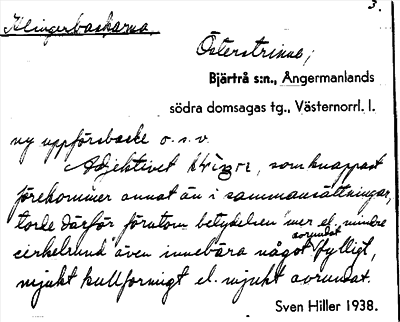 3.
Klingerbackarna.
Österstrinne;
Bjärtrå s:n., Ångermanlands
södra domsagas tg., Västernorrl. l.
ny uppförsbacke o.s.v.
Adjektivet, som knappast
förekommer annat än i sammansättningar,
torde därför förutom betydelsen "mer el. mindre
cirkelrund" även innebära något avrundat fylligt,
mjukt kullformigt el. mjukt avrundat.
Sven Hiller 1938.